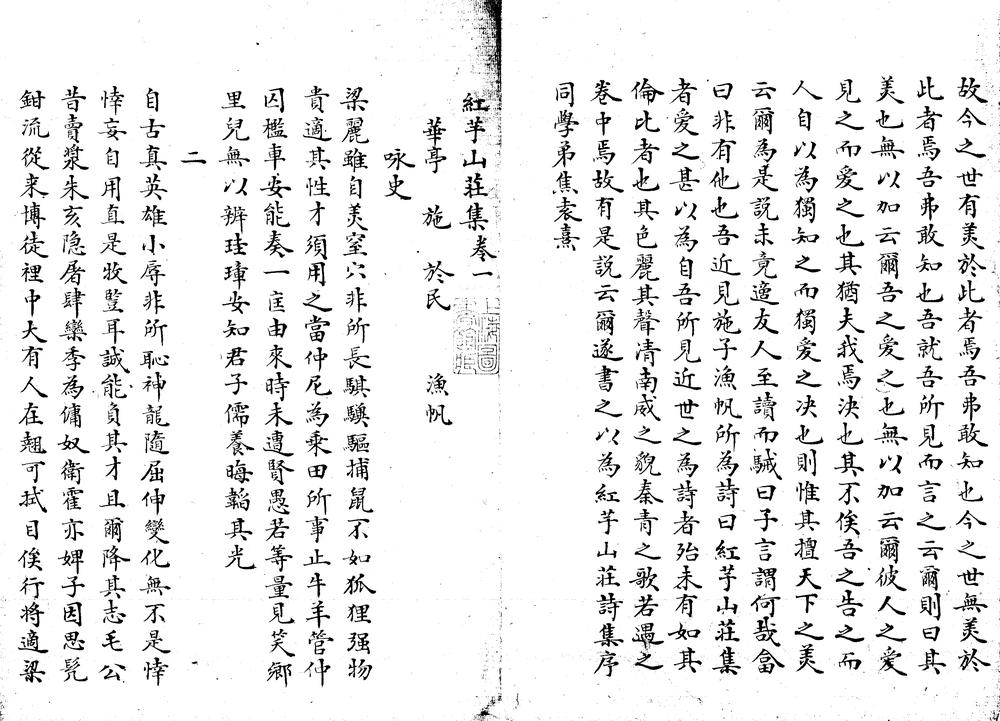 故今之世有美於此者焉吾弗敢知也今之世無美於
此者焉吾弗敢知也吾就吾所見而言之云爾則曰其
美也無以加云爾吾之愛之也無以加云爾彼人之愛
見之而愛之也其猶夫我焉決也其不俟吾之告之而
人自以為獨知之而獨愛之決也則惟其擅天下之美
云爾為是說未竟適友人至讀而駴曰子言謂何哉畣
曰非有他也吾近見施子漁帆所為詩曰紅芋山莊集
者愛之甚以為自吾所見近世之為詩者殆未有如其
倫比者也其色麗其聲清南威之貌秦青之歌若遇之
卷中焉故有是說云爾遂書之以為紅芋山莊詩集序
同學弟焦袁熹
紅芋山莊集卷一
華亭 施 於民 漁帆
咏史
梁麗雖自美窒穴非所長騏驥驅捕鼠不如狐狸强物
貴適其性才須用之當仲尼為乘田所事止牛羊管仲
囚檻車安能奏一匡由來時未遭賢愚若等量見笑鄉
里兒無以辨珪璋安知君子儒養晦韜其光
二
自古真英雄小辱非所恥神龍隨屈伸變化無不是悻
悻妄自用直是牧豎耳誠能負其才且爾降其志毛公
昔賣漿朱亥隐屠肆欒季為傭奴衛霍亦婢子因思髡
鉗流從来博徒裡中大有人在翹可拭目俟行將適梁